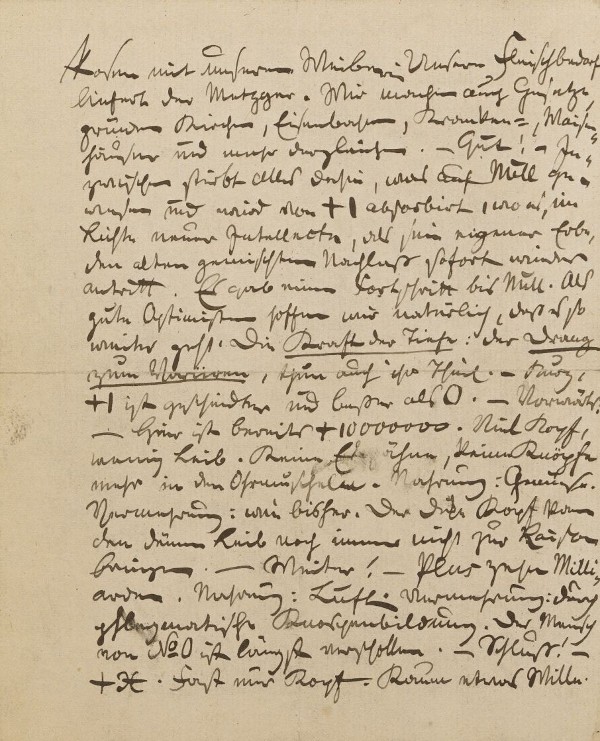 Kosen mit unseren Weibern. Unsern Fleischbedarf
liefert der Metzger. Wir machen auch Gesetze,
gründen Kirchen, Eisenbahnen, Kranken=, Waisen
häuser und mehr dergleichen. – Gut! – In-
zwischen stirbt Alles dahin, was auf Null ge-
wesen und wird von +1 absorbirt, wo es, im
Lichte neuer Intellecte, als sein eigener Erbe,
den alten gemischten Nachlaß sofort wieder
antritt. Es gab einen Fortschritt bis Null. Als
gute Optimisten hoffen wir natürlich, daß es so
weiter geht. Die Kraft der Tiefe: der Drang
zum Variiren, thun auch ihr Theil. – Kurz,
+1 ist gescheidter und beßer als 0. – Vorwärts!
– Hier ist bereits +10000000. Viel Kopf,
wenig Leib. Keine Eckzähne, keine Knöpfe
mehr in den Ohrmuscheln. Nahrung: Gemüse.
Vermehrung: wie bisher. Der dicke Kopf kann
den dünnen Leib noch immer nicht zur Raison
bringen. – Weiter! – Plus zehn Milli-
arden. Nahrung: Luft. Vermehrung: durch
phlegmatische Knospenbildung. Der Mensch
von No 0 ist längst verschollen. – Schluß! –
+X. Fast nur Kopf. Kaum etwas Wille.